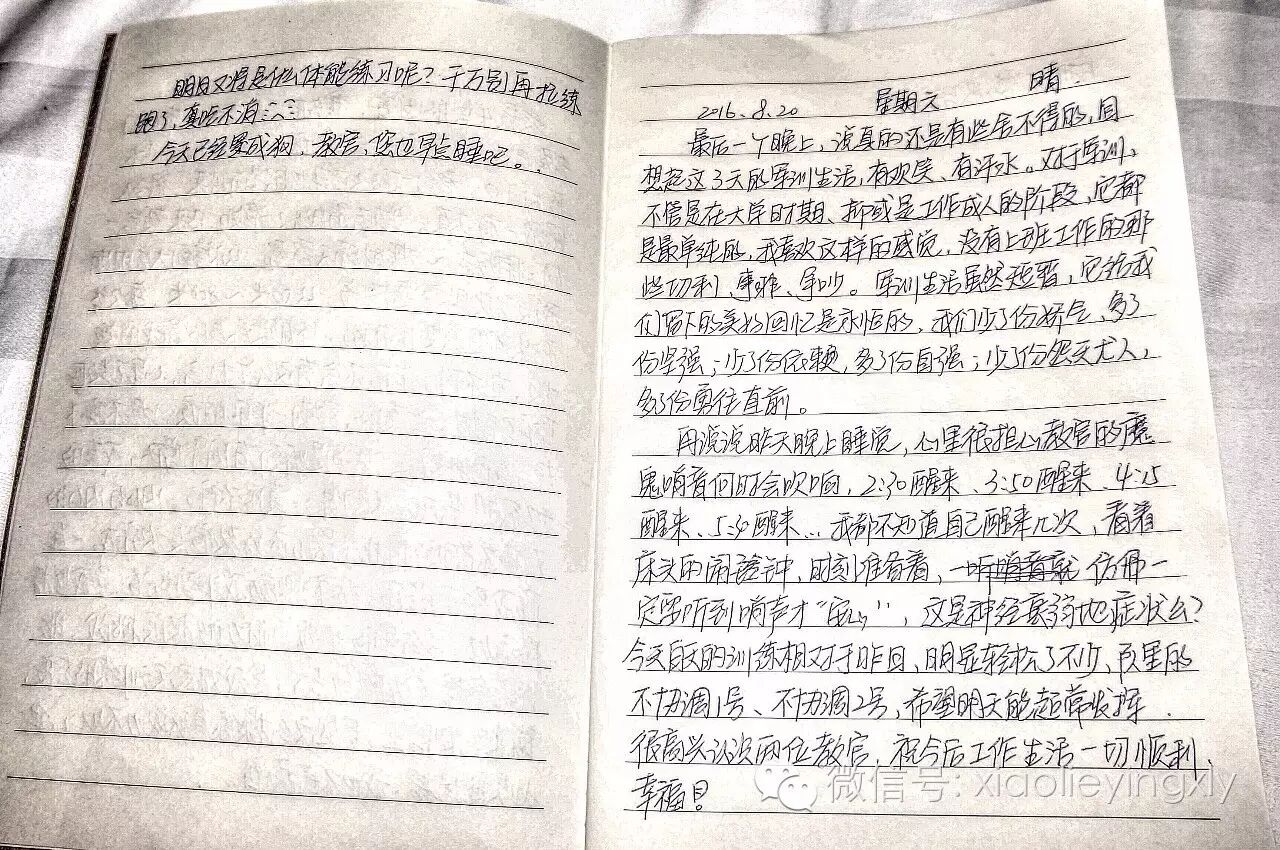 明日又将是什么体能练习呢？千万别再拉练
跑了，真吃不消
今天已经累成狗，教官，您也早点睡吧。
2016.8.20 星期六 晴.
最后一个晚上，说真的还是有些舍不得的，回
想起这3天的军训生活，有欢笑、有汗水。对于军训，
不管是在大学时期、抑或是工作成人的阶段，它都
是最单纯的，我喜欢这样的感觉，没有上班工作的那
些功利、争吵。军训生活虽然短暂，它给我
们留下的美好回忆是永恒的，我们少了份娇气、多了
份坚强；少了份依赖，多了份自强；少了份怨天尤人，
多了份勇往直前。
再说说昨天晚上睡觉，心里很担心教官的魔
鬼哨音何时会吹响，2:30醒来、3:50醒来、4:15
醒来、5:30醒来…我都不知道自己醒来几次，看着
床头的闹钟，时刻准备着，一听哨音就 仿佛一
定要听到哨声才“安心”，这是神经衰弱地症状么？
今天白天的训练相对于昨日，明显轻松了不少，队里的
不协调1号、不协调2号，希望明天能超常发挥.
很高兴认识两位教官，祝今后工作生活一切顺利、
幸福！
微信号: xiaolieyingxly